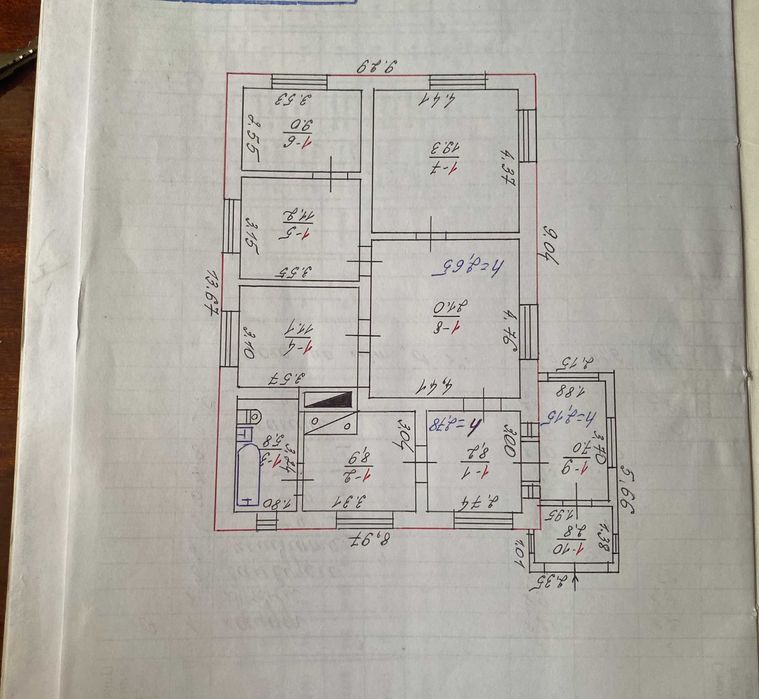 2.35
1.01
1-10
2.8
1.38
1.95
8,97
5,66
1-9
7.0
3.70
h=2,15
1.88
2.15
2.74
1-1
8,2
3.00
h=2,78
3.31
1-2
8,9
3.04
1.80
1-3
5.8
3.24
4,41
1-8
21.0
4.76
h=2,65
3.57
1-4
11.1
3.10
13.67
9.04
3.55
1-5
11,2
3.15
1-7
19.3
4.37
4.41
1-6
9.0
2.55
3.53
9.29